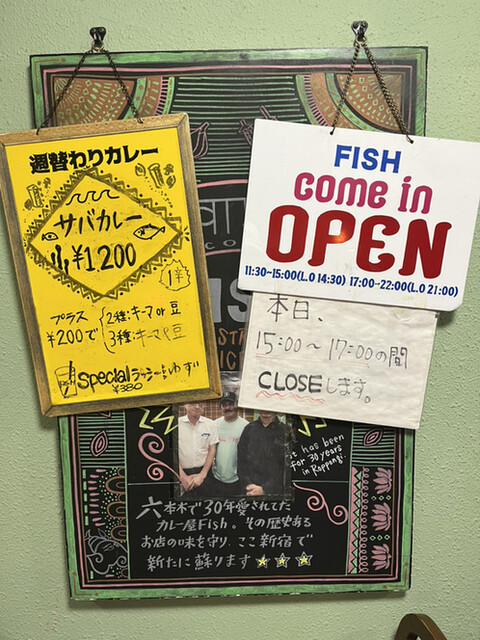 週替わりカレー
サバカレー
小¥1,200
プラス
¥200で
2種:キーマor豆
3種:キーマ&豆
Specialラッシー:ゆず
¥380
FISH
come in
OPEN
11:30~15:00(L.O 14:30) 17:00~22:00(L.O 21:00)
本日、
15:00~17:00の間
CLOSEします。
it has been
for 30 years
in Roppongi.
六本木で30年愛されてた
カレー屋Fish。その歴史ある
お店の味を守り、ここ新宿で
新たに蘇ります★★★